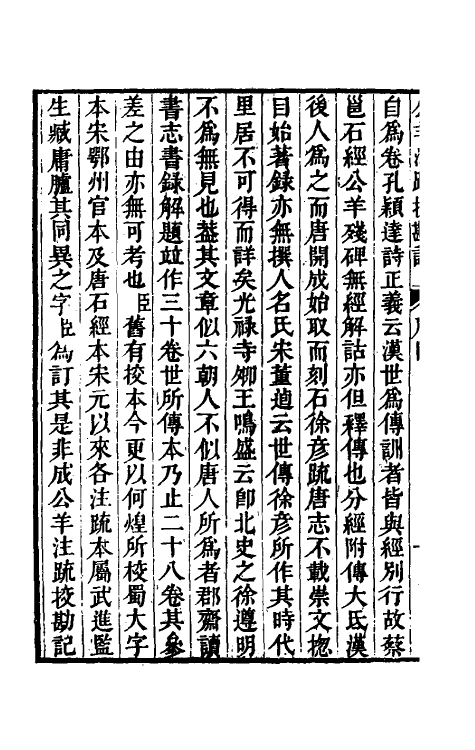 自爲卷孔穎達詩正義云漢世爲傳訓者皆與經別行故蔡
邕石經公羊殘碑無經解詁亦但釋傳也分經附傳大氐漢
後人爲之而唐開成始取而刻石徐彥疏唐志不載崇文揔
目始著錄亦無撰人名氏宋董逌云世傳徐彥所作其時代
里居不可得而詳矣光祿寺卿王鳴盛云卽北史之徐遵明
不爲無見也葢其文章似六朝人不似唐人所爲者郡齋讀
書志書錄解題竝作三十卷世所傳本乃止二十八卷其參
差之由亦無可考也臣舊有校本今更以何煌所校蜀大字
本宋鄂州官本及唐石經本宋元以來各注疏本屬武進監
生臧庸臚其同異之字臣爲訂其是非成公羊注疏校勘記